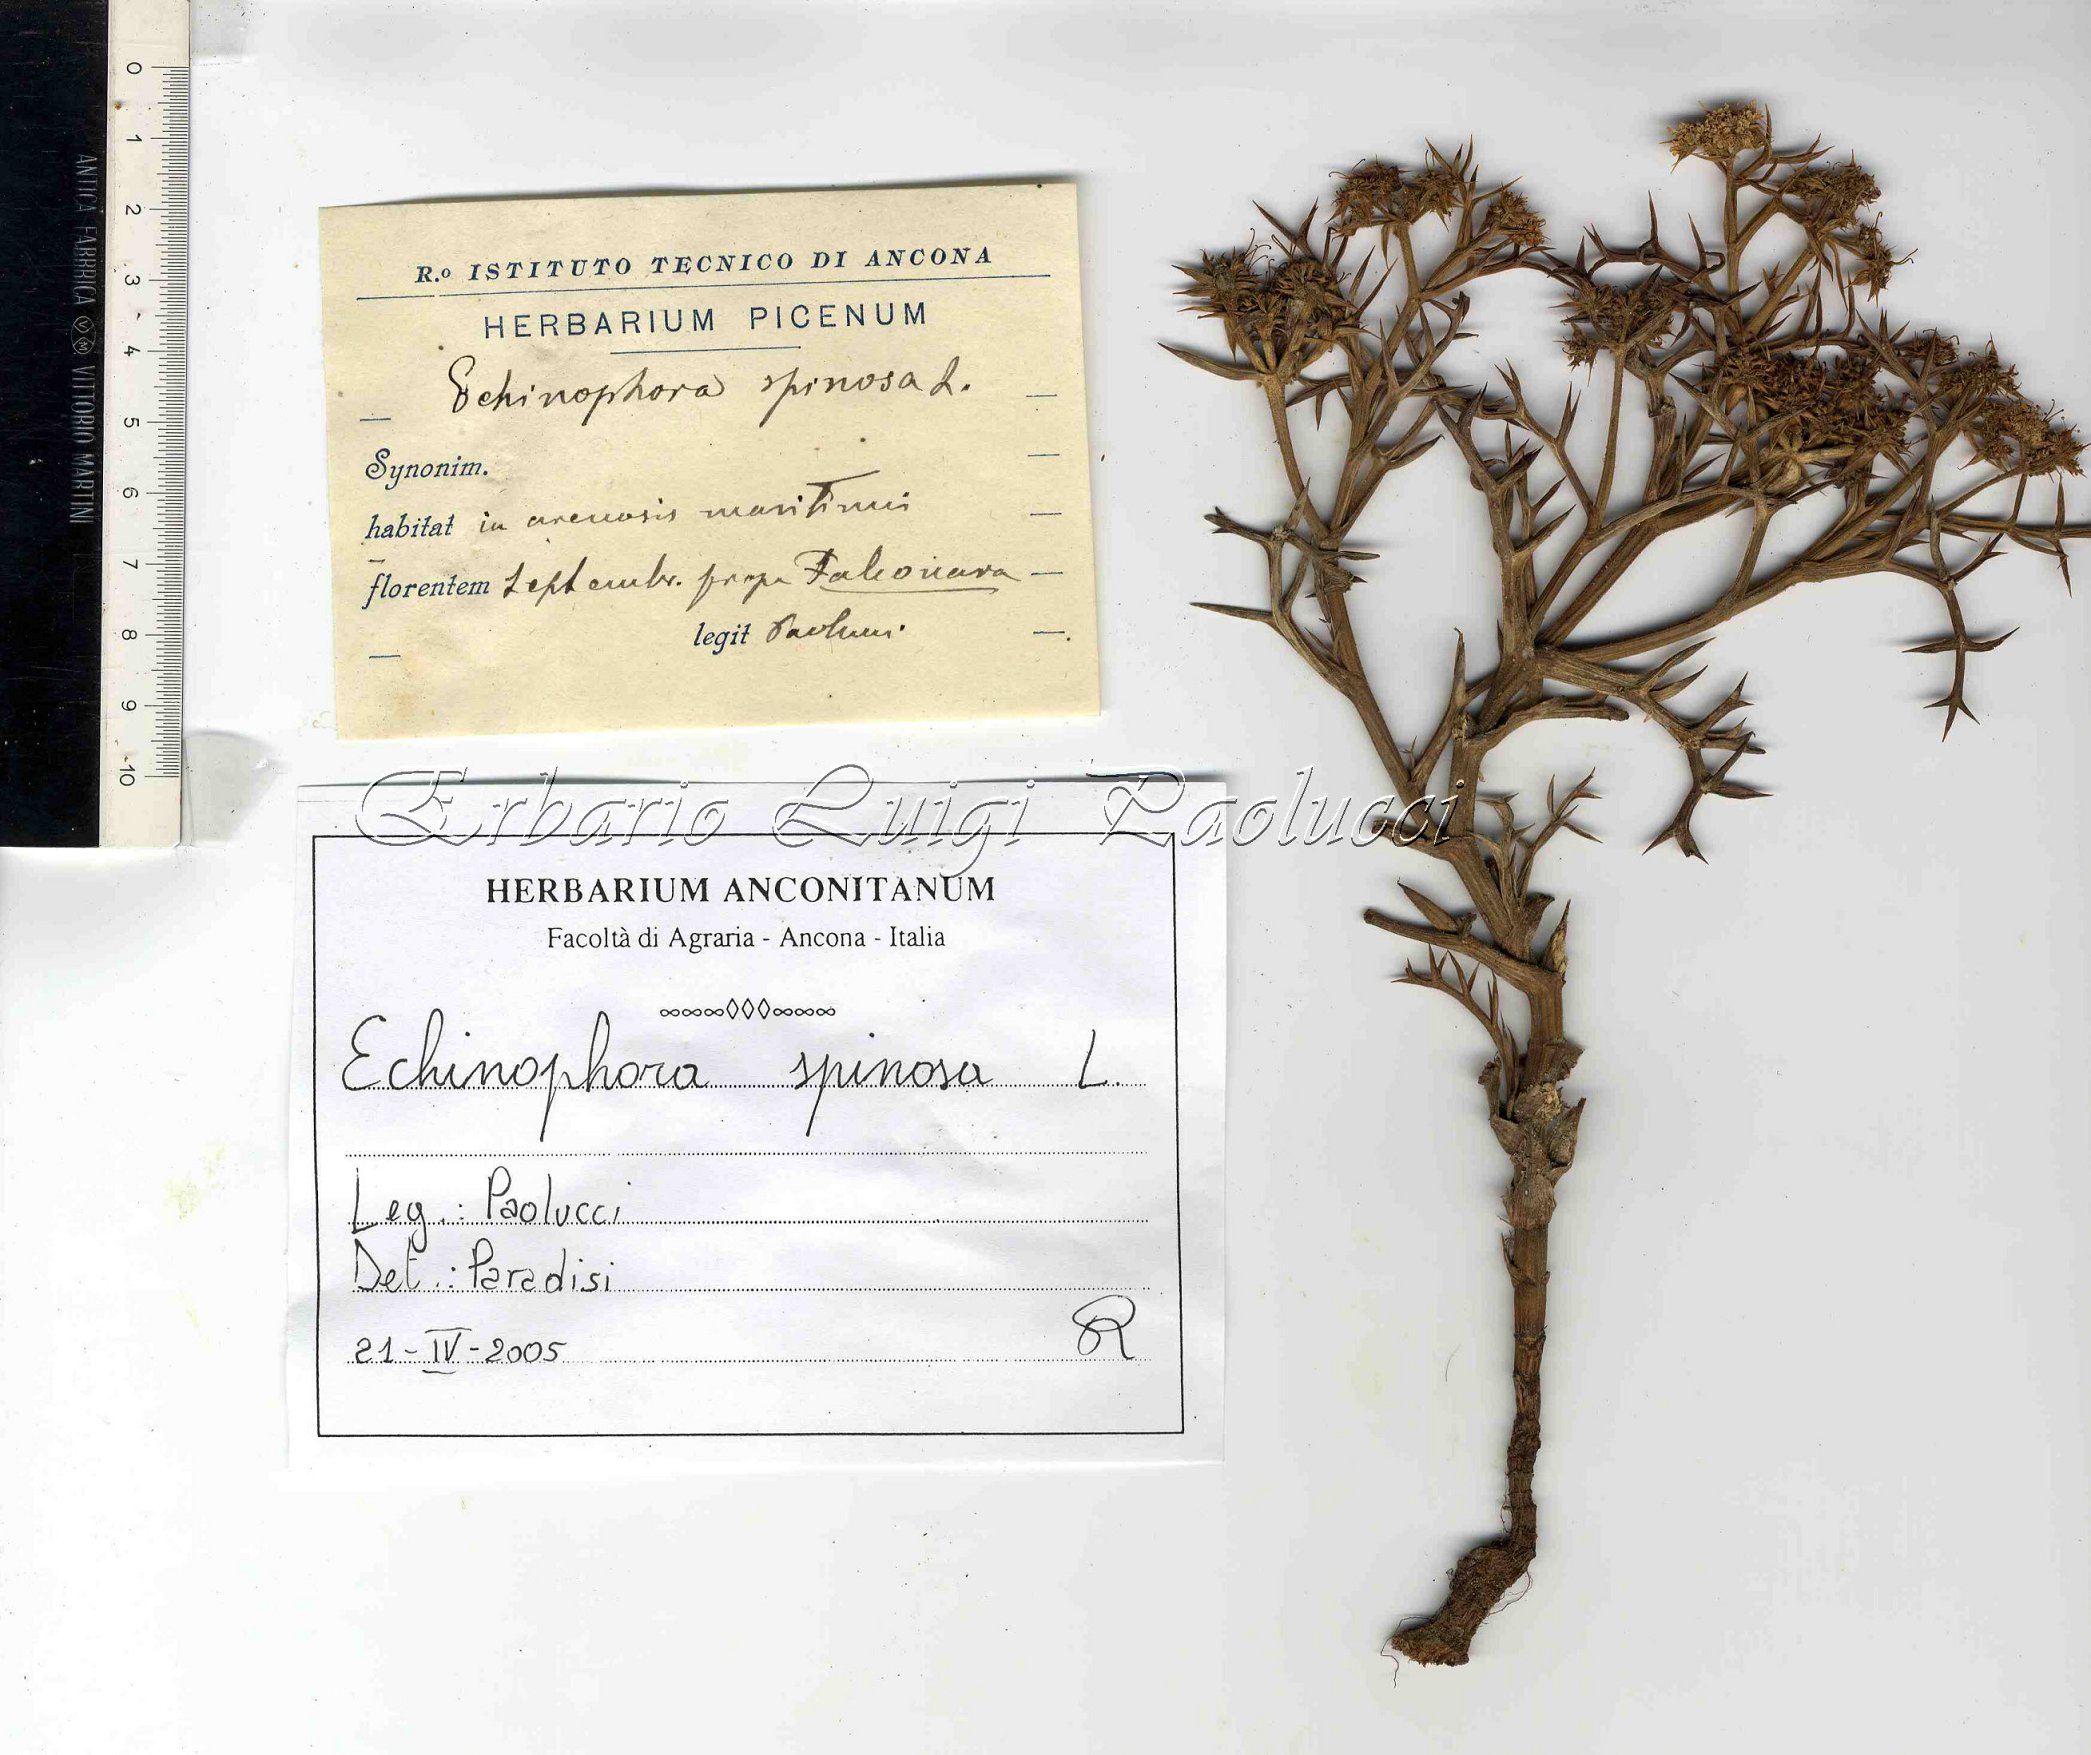 0 1 2 3 4 5 6 7 8 9 10
ANTICA FABBRICA VM VITTORIO MARTINI
R.º ISTITUTO TECNICO DI ANCONA
HERBARIUM PICENUM
Echinophora spinosa L.
Synonim.
habitat in arenosis maritimis
florentem Septembr. prope Falconara
legit Paolucci
Erbario Luigi Paolucci
HERBARIUM ANCONITANUM
Facoltà di Agraria - Ancona - Italia
Echinophora spinosa L.
Leg.: Paolucci
Det.: Paradisi
21-IV-2005 R